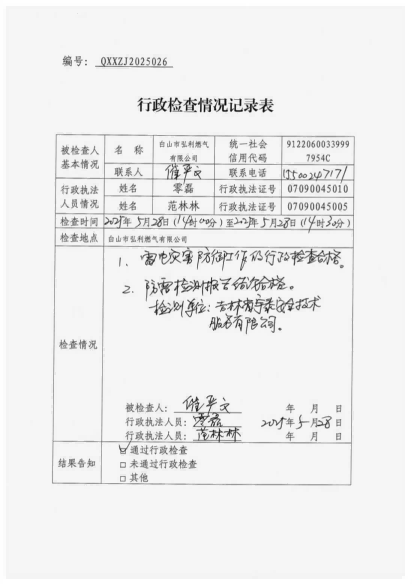 编号：QXXZJ2025026
行政检查情况记录表
被检查人基本情况 名 称 白山市弘利燃气有限公司 统一社会信用代码 91220600339997954C
联系人 崔平文 联系电话 15500247171
行政执法人员情况 姓名 零磊 行政执法证号 07090045010
姓名 范林林 行政执法证号 07090045005
检查时间 2025年5月28日(14时00分)至2025年5月28日(14时30分)
检查地点 白山市弘利燃气有限公司
检查情况
1、雷电灾害防御工作的行政检查合格。
2、防雷检测报告结论合格。
检测单位：吉林省宇泰安全技术
服务有限公司。
被检查人：崔平文 年 月 日
行政执法人员：零磊 2025年5月28日
行政执法人员：范林林 年 月 日
结果告知
☑通过行政检查
□未通过行政检查
□其他